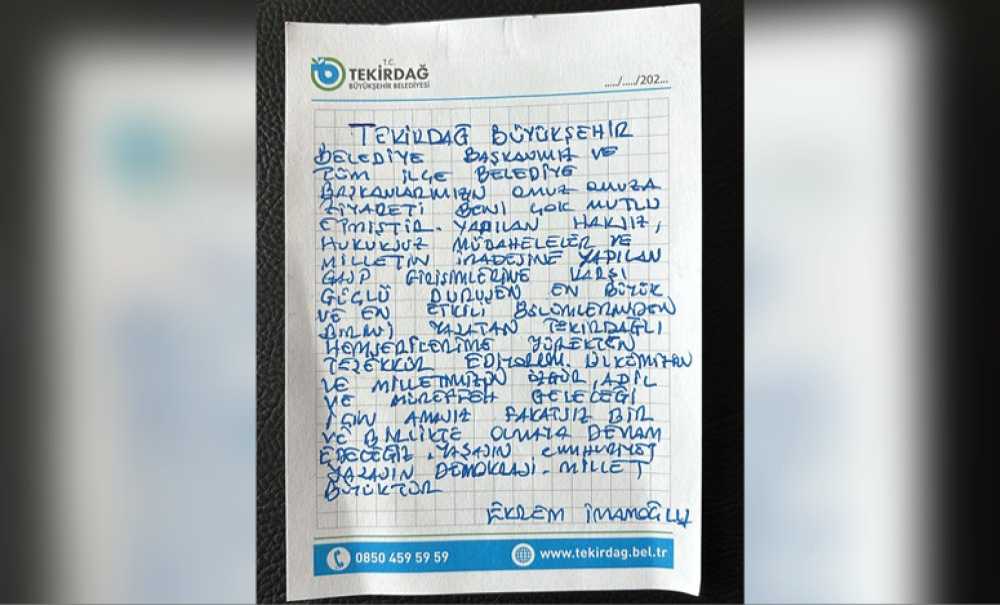 T.C.
TEKİRDAĞ
BÜYÜKŞEHİR BELEDİYESİ
...../...../202...
TEKİRDAĞ BÜYÜKŞEHİR
BELEDİYE BAŞKANIMIZ VE
TÜM İLÇE BELEDİYE
BAŞKANLARIMIZIN OMUZ OMUZA
ZİYARETİ BENİ ÇOK MUTLU
ETMİŞTİR. YAPILAN HAKSIZ,
HUKUKSUZ MÜDAHELELER VE
MİLLETİN İRADESİNE YAPILAN
GASP GİRİŞİMLERİNE KARŞI
GÜÇLÜ DURUŞUN EN BÜYÜK
VE EN ETKİLİ BÖLÜMLERİNDEN
BİRİNİ YAŞATAN TEKİRDAĞLI
HEMŞERİLERİME YÜREKTEN
TEŞEKKÜR EDİYORUM. ÜLKEMİZİN
VE MİLLETİMİZİN ÖZGÜR, ADİL
VE MÜREFFEH GELECEĞİ
İÇİN AMASIZ FAKATSIZ BİR
VE BİRLİKTE OLMAYA DEVAM
EDECEĞİZ. YAŞASIN CUMHURİYET
YAŞASIN DEMOKRASİ. MİLLET
BÜYÜKTÜR
EKREM İMAMOĞLU
0850 459 59 59 www.tekirdag.bel.tr